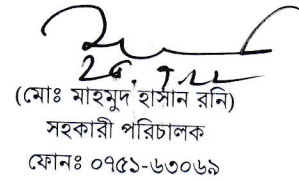 (মোঃ মাহমুদ হাসান রনি)
সহকারী পরিচালক
ফোনঃ ০৭৫১-৬৩০৬৯